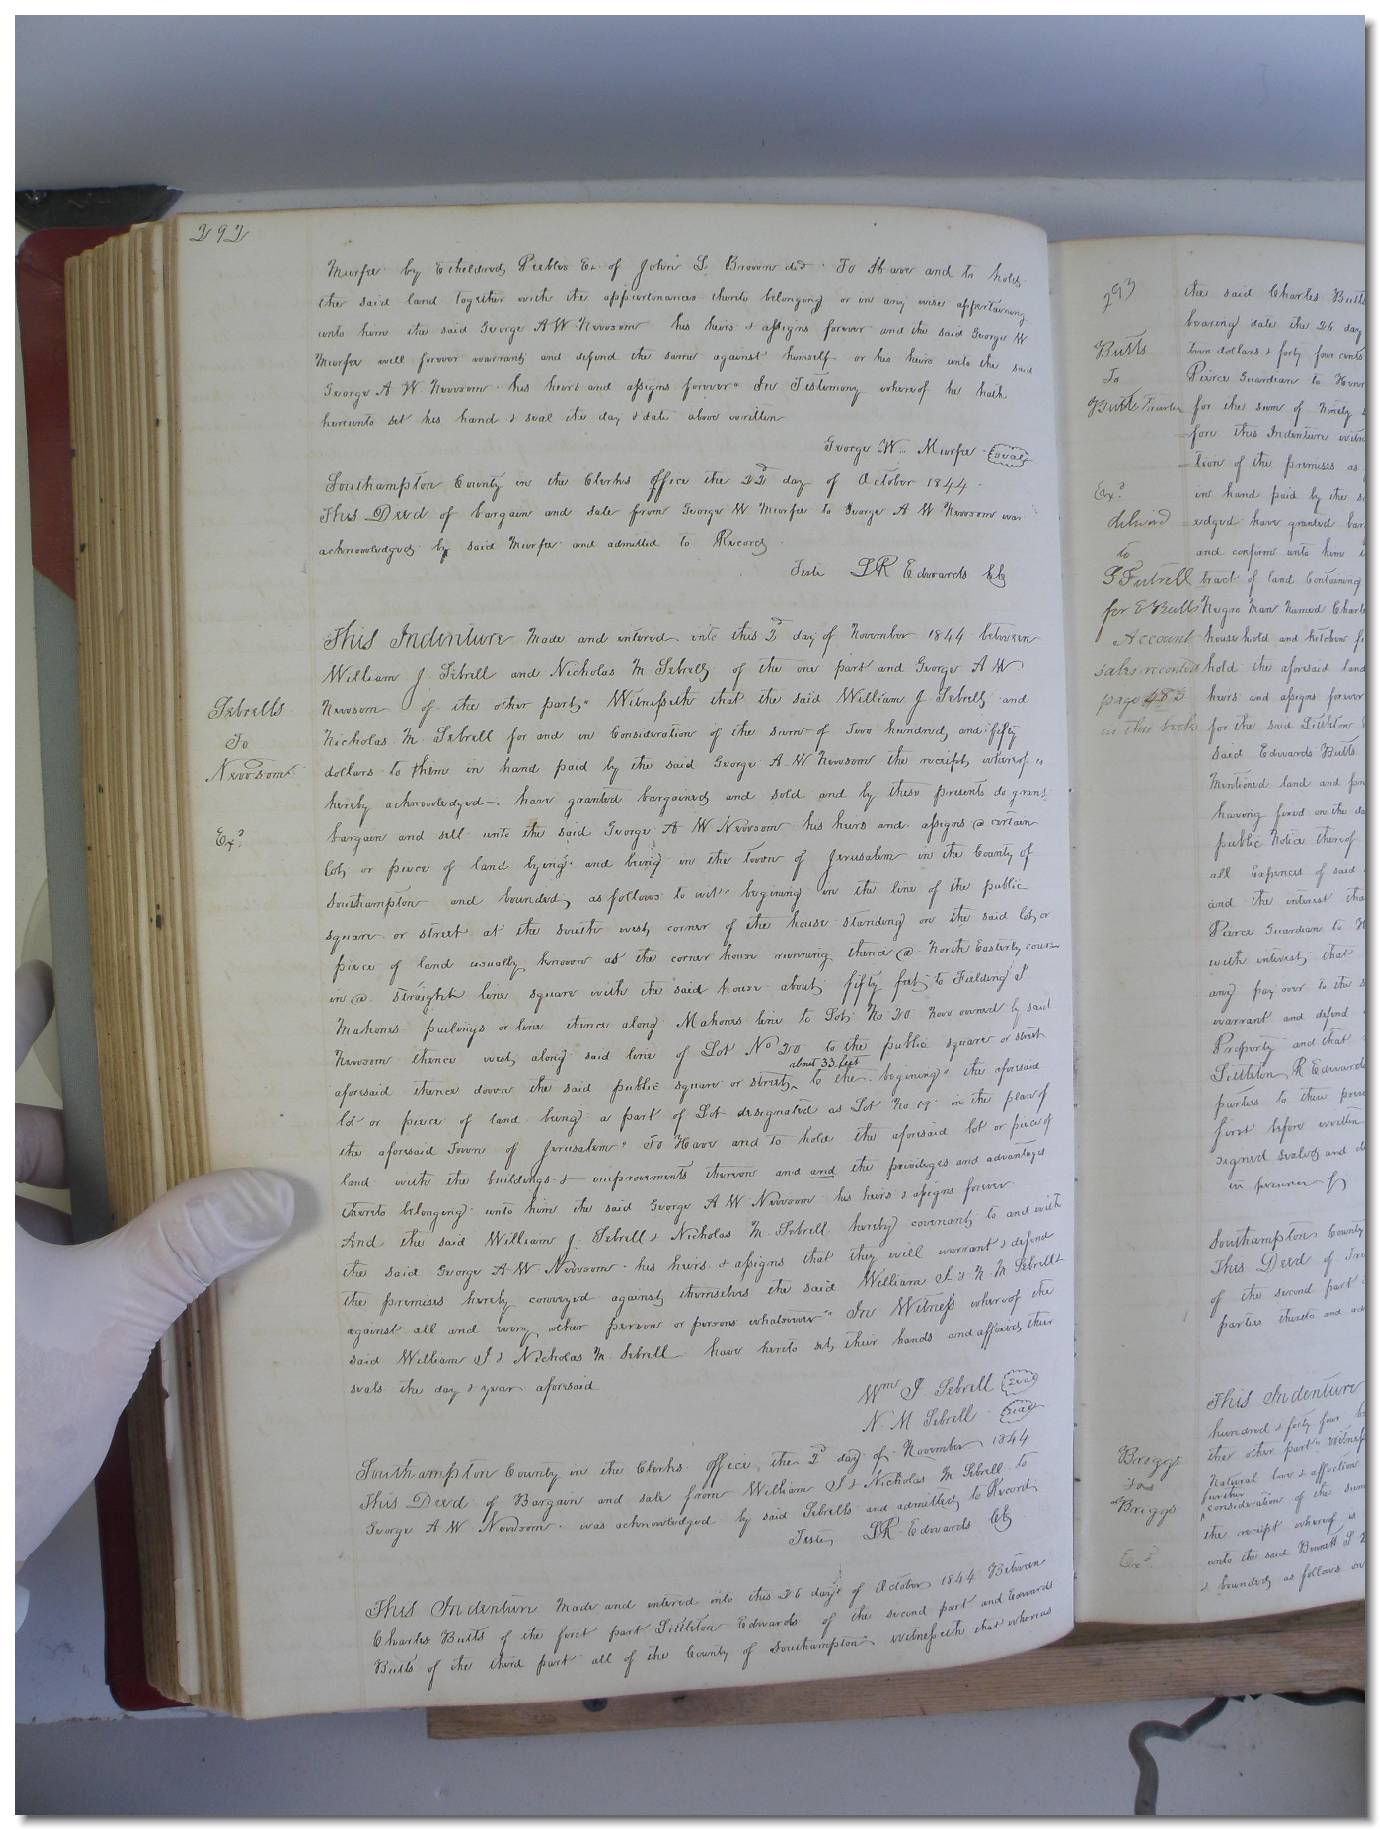 292
Murfee by Etheldred Peebles Ex. of John S. Brown decd. To Have and to hold
the said land together with the appurtinances thereto belonging or in any wise appertaining
unto him the said George A W Newsom his heirs & assigns forever and the said George W
Murfee will forever warrant and defend the same against himself or his heirs unto the said
George A W Newsom his heirs and assigns forever" In Testimony whereof he hath
hereunto set his hand & seal the day & date above written
George W. Murfee seal
Southampton County in the Clerks office the 22d day of October 1844
This Deed of bargain and sale from George W Murfee to George A W Newsom was
acknowledged by said Murfee and admitted to Record
Teste LR Edwards
This Indenture Made and entered into this 2d day of November 1844 between
William J Sebrell and Nicholas M Sebrell of the one part and George A W
Sebrells
To
Newsom
Exd
Newsom of the other part" Witnesseth that the said William J Sebrell and
Nicholas M. Sebrell for and in Consideration of the sum of Two hundred and fifty
dollars to them in hand paid by the said George A W Newsom the receipt whereof is
hereby acknowledged have granted bargained and sold and by these presents do grant
bargain and sell unto the said George A W Newsom his heirs and assigns a certain
lot or piece of land lying and being in the Town of Jerusalem in the County of
Southampton and bounded as follows to wit" begining in the line of the public
square or street at the south west corner of the house standing on the said lot or
piece of land usually known as the corner house running thence a North Easterly course
in a straight line square with the said house about fifty feet to Fielding J
Mahones line thence along Mahones line to Lot No 20 Now owned by said
Newsom thence west along said line of Lot No 20 to the public square or street
aforesaid thence down the said public square or street about 33 feet to the begining" the aforesaid
lot or piece of land being a part of Lot designated as Lot No 19 in the plan of
the aforesaid Town of Jerusalem" To Have and to hold the aforesaid lot or piece of
land with the buildings & improvements thereon and and the privileges and advantages
thereto belonging unto him the said George A W Newsom his heirs & assigns forever
And the said William J. Sebrell & Nicholas M. Sebrell hereby covenant to and with
the said George A W Newsom his heirs & assigns that they will warrant & defend
the premises hereby conveyed against themselves the said William J & N. M Sebrell &
against all and every other person or persons whatsoever" In Witness whereof the
said William J & Nicholas M. Sebrell have hereto set their hands and affixed their
seals the day & year aforesaid
Wm J. Sebrell seal
N. M Sebrell seal
Southampton County in the Clerks office the 2d day of November 1844
This Deed of Bargain and sale from William J & Nicholas M Sebrell to
George A W Newsom was acknowledged by said Sebrells and admitted to Record
Teste LR Edwards
This Indenture Made and entered into this 26 day of October 1844 Between
Charles Butts of the first part Littleton Edwards of the second part and Edwards
Butts of the third part all of the County of Southampton" witnesseth that whereas
293
Butts
To
Butts Trustee
Exd
delivd
to
G Futrell
for E Butts
Account
sales recorded
page 482
in this book
the said Charles Butts
bearing date the 26 day
two dollars & forty four cents
Pierce Guardian to
for the sum of Ninety
fore this Indenture
tion of the premises as
in hand paid by the
edged have granted
and confirm unto him
tract of land Containing
Negro Man Named
household and kitchen
hold the aforesaid land
heirs and assigns forever
for the said Littleton
said Edwards Butts
Mentioned land and
having fixed on the
public Notice thereof
all Expences of said
and the interest
Pierce Guardian to
with interest that
any pay over to the
warrant and defend
Property and that
Littleton R Edwards
parties to these
first before written
signed sealed and
in presence of
Southampton County
This Deed of
of the second part
parties thereto and
Briggs
To
Briggs
Exd
This Indenture
hundred & forty four
the other part"
Natural love & affection
further
consideration of the sum
the receipt whereof is
unto the said
& bounded as follows